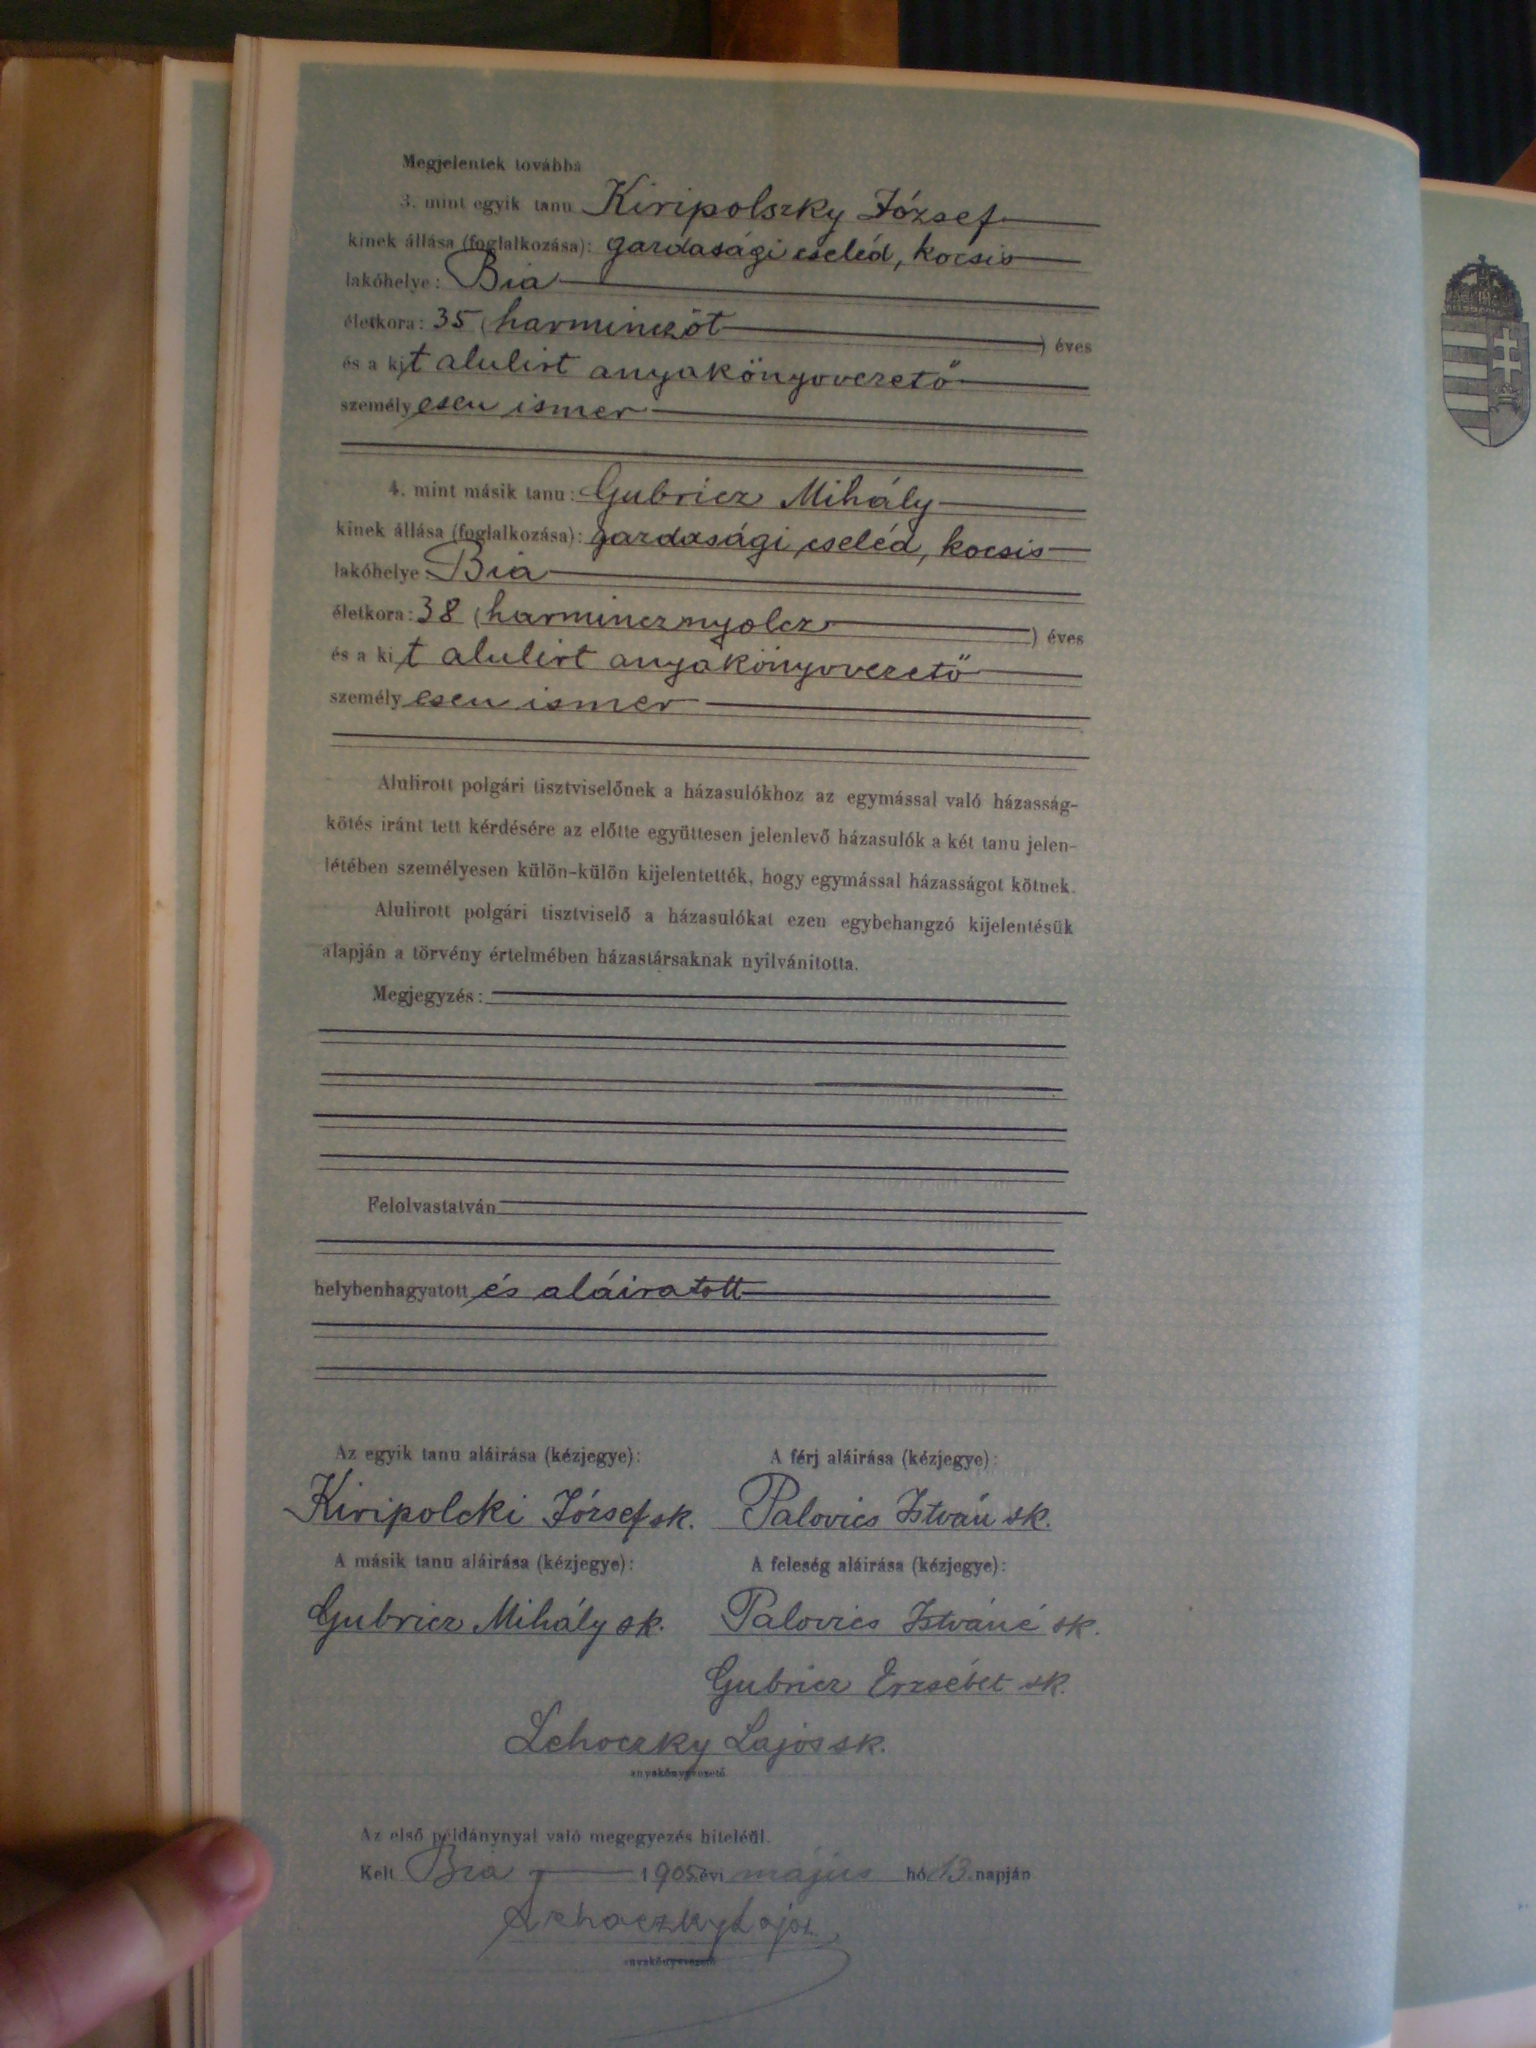 Megjelentek továbbá
3. mint egyik tanu Kiripolszky József
kinek állása (foglalkozása): gazdasági cseléd, kocsis
lakóhelye: Bia
életkora: 35 (harminczöt) éves
és a kit alulirt anyakönyvvezető
személyesen ismer
4. mint másik tanu: Gubricz Mihály
kinek állása (foglalkozása): gazdasági cseléd, kocsis
lakóhelye: Bia
életkora: 38 (harmincznyolcz) éves
és a kit alulirt anyakönyvvezető
személyesen ismer
Alulirott polgári tisztviselőnek a házasulókhoz az egymással való házasság-
kötés iránt tett kérdésére az előtte együttesen jelenlevő házasulók a két tanu jelen-
létében személyesen külön-külön kijelentették, hogy egymással házasságot kötnek.
Alulirott polgári tisztviselő a házasulókat ezen egybehangzó kijelentésük
alapján a törvény értelmében házastársaknak nyilvánitotta.
Megjegyzés:
Felolvastatván
helybenhagyatott és aláiratott
Az egyik tanu aláirása (kézjegye): A férj aláirása (kézjegye):
Kiripolcki József sk. Palovics István sk.
A másik tanu aláirása (kézjegye): A feleség aláirása (kézjegye):
Gubricz Mihály sk. Palovics Istváné sk.
Gubricz Erzsébet sk.
Lehoczky Lajos sk.
anyakönyvvezető
Az első példánynyal való megegyezés hiteléül.
Kelt Bia 1905 évi május hó 13. napján
Lehoczky Lajos
anyakönyvvezető